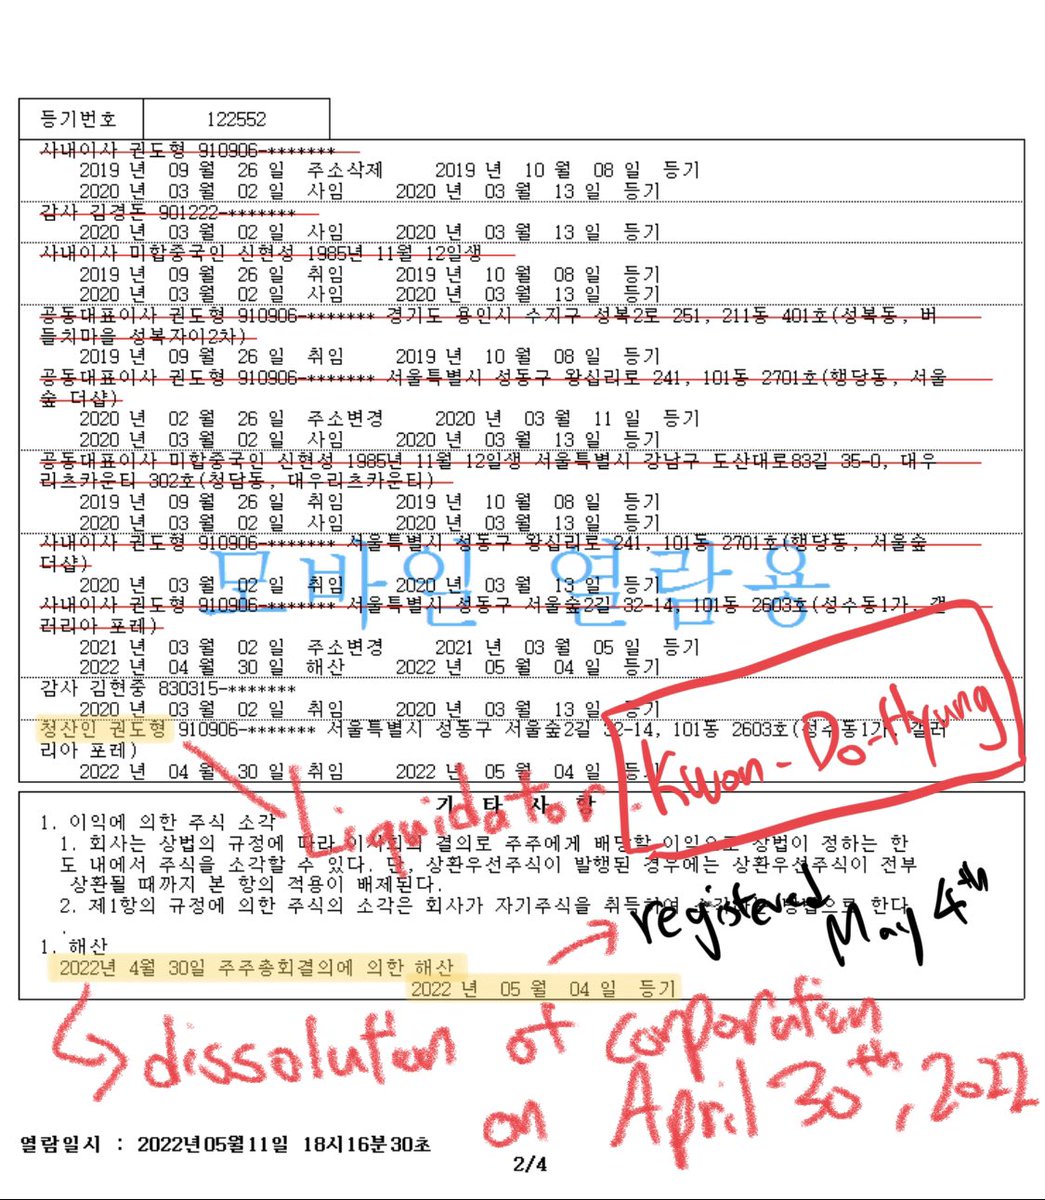 등기번호 122552
사내이사 권도형 910906-*******
2019 년 09 월 26 일 주소삭제 2019 년 10 월 08 일 등기
2020 년 03 월 02 일 사임 2020 년 03 월 13 일 등기
감사 김경돈 901222-*******
2020 년 03 월 02 일 사임 2020 년 03 월 13 일 등기
사내이사 미합중국인 신현성 1985년 11월 12일생
2019 년 09 월 26 일 취임 2019 년 10 월 08 일 등기
2020 년 03 월 02 일 사임 2020 년 03 월 13 일 등기
공동대표이사 권도형 910906-******* 경기도 용인시 수지구 성복2로 251, 211동 401호(성복동, 버
들치마을 성복자이2차)
2019 년 09 월 26 일 취임 2019 년 10 월 08 일 등기
공동대표이사 권도형 910906-******* 서울특별시 성동구 왕십리로 241, 101동 2701호(행당동, 서울
숲 더샵)
2020 년 02 월 26 일 주소변경 2020 년 03 월 11 일 등기
2020 년 03 월 02 일 사임 2020 년 03 월 13 일 등기
공동대표이사 미합중국인 신현성 1985년 11월 12일생 서울특별시 강남구 도산대로83길 35-0, 대우
리츠카운티 302호(청담동, 대우리츠카운티)
2019 년 09 월 26 일 취임 2019 년 10 월 08 일 등기
2020 년 03 월 02 일 사임 2020 년 03 월 13 일 등기
사내이사 권도형 910906-******* 서울특별시 성동구 왕십리로 241, 101동 2701호(행당동, 서울숲
더샵)
모바일 열람용
2020 년 03 월 02 일 취임 2020 년 03 월 13 일 등기
사내이사 권도형 910906-******* 서울특별시 성동구 서울숲2길 32-14, 101동 2603호(성수동1가, 갤
러리아 포레)
2021 년 03 월 02 일 주소변경 2021 년 03 월 05 일 등기
2022 년 04 월 30 일 해산 2022 년 05 월 04 일 등기
감사 김현중 830315-*******
2020 년 03 월 02 일 취임 2020 년 03 월 13 일 등기
청산인 권도형 910906-******* 서울특별시 성동구 서울숲2길 32-14, 101동 2603호(성수동1가, 갤러
리아 포레)
2022 년 04 월 30 일 취임 2022 년 05 월 04 일 등기
Liquidator: Kwon-Do-Hyung
기 타 사 항
1. 이익에 의한 주식 소각
1. 회사는 상법의 규정에 따라 이사회의 결의로 주주에게 배당할 이익으로 상법이 정하는 한
도 내에서 주식을 소각할 수 있다. 단, 상환우선주식이 발행된 경우에는 상환우선주식이 전부
상환될 때까지 본 항의 적용이 배제된다.
2. 제1항의 규정에 의한 주식의 소각은 회사가 자기주식을 취득하여 소각하는 방법으로 한다
.
registered May 4th
1. 해산
2022년 4월 30일 주주총회결의에 의한 해산
2022 년 05 월 04 일 등기
dissolution of corporation
on April 30th, 2022
열람일시 : 2022년05월11일 18시16분30초
2/4